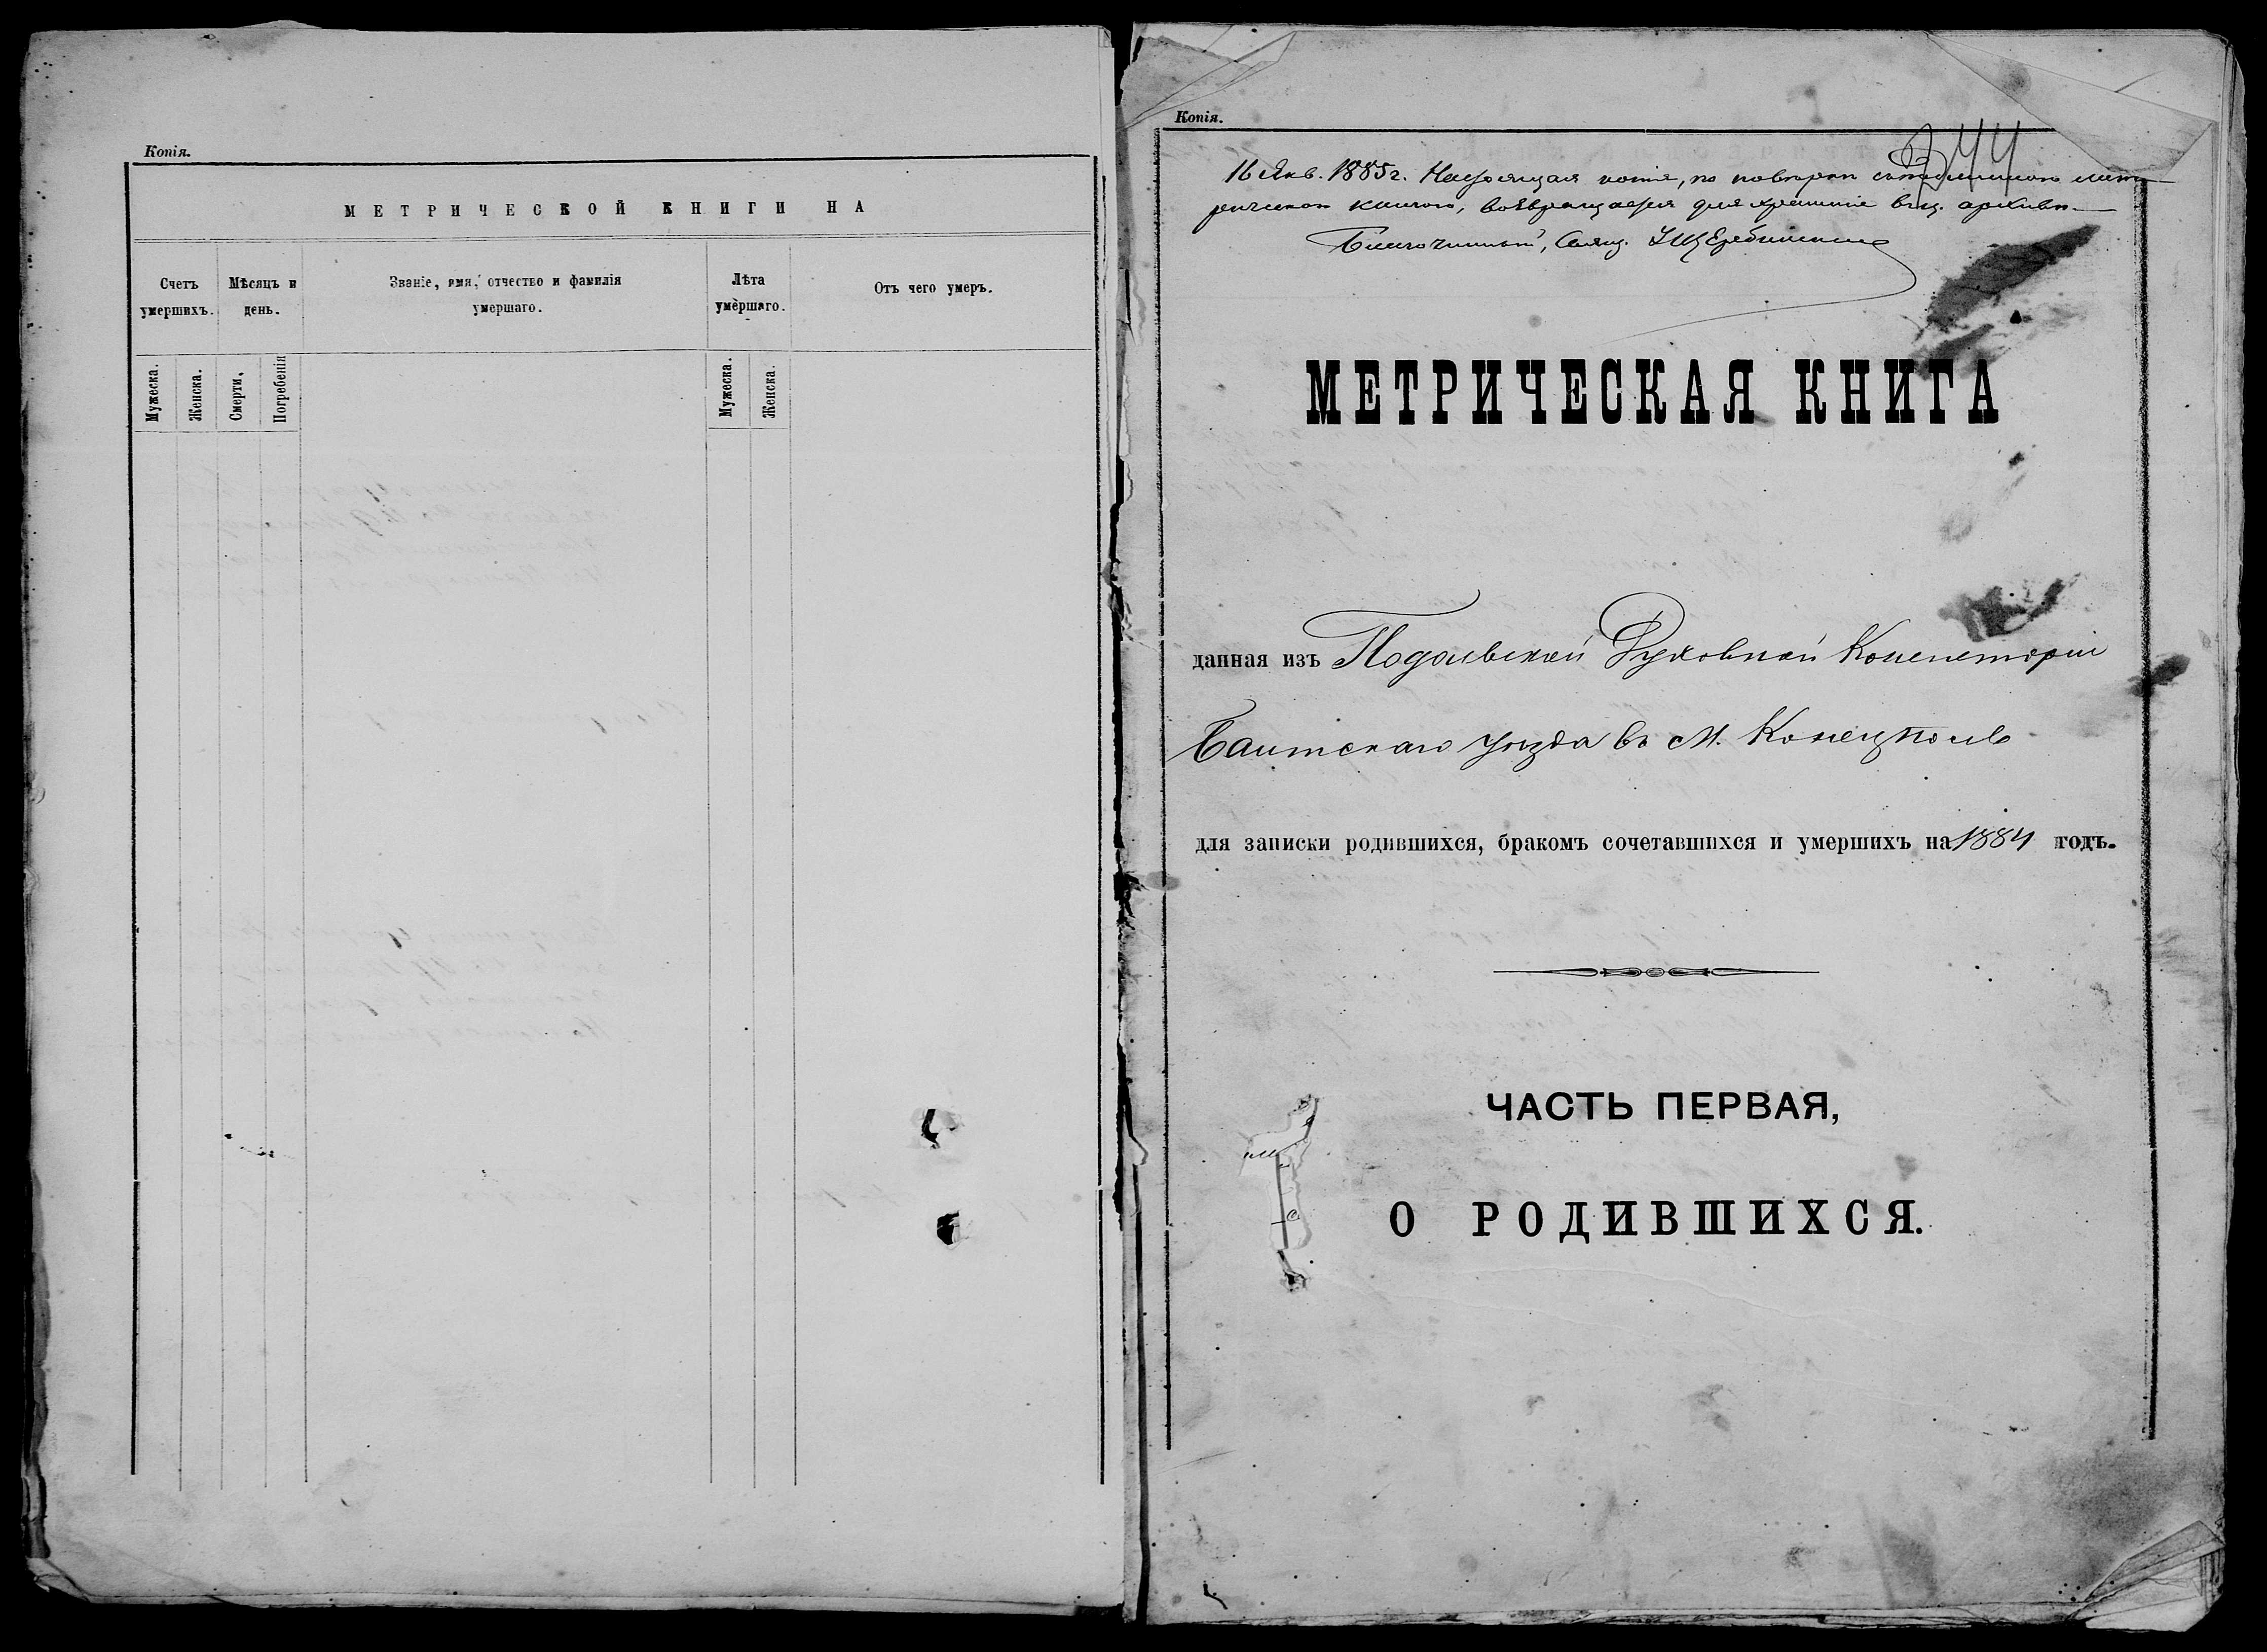 Копія.
МЕТРИЧЕСКОЙ КНИГИ НА
Счетъ умершихъ.
Мѣсяцъ и день.
Званіе, имя, отчество и фамилія умершаго.
Лѣта умершаго.
Отъ чего умеръ.
Мужеска.
Женска.
Смерти.
Погребенія
Мужеска.
Женска.
Копія.
344
16 Янв. 1885 г. Настоящая копія, по повѣркѣ съ подлинною мет-
рическою книгою, возвращается для храненія въ ц. архивѣ.
Благочинный, Свящ.
МЕТРИЧЕСКАЯ КНИГА
данная изъ Подольской Духовной Консисторіи
Балтскаго уѣзда въ м. Концеполь
для записки родившихся, бракомъ сочетавшихся и умершихъ на 1884 годъ.
ЧАСТЬ ПЕРВАЯ,
О РОДИВШИХСЯ.